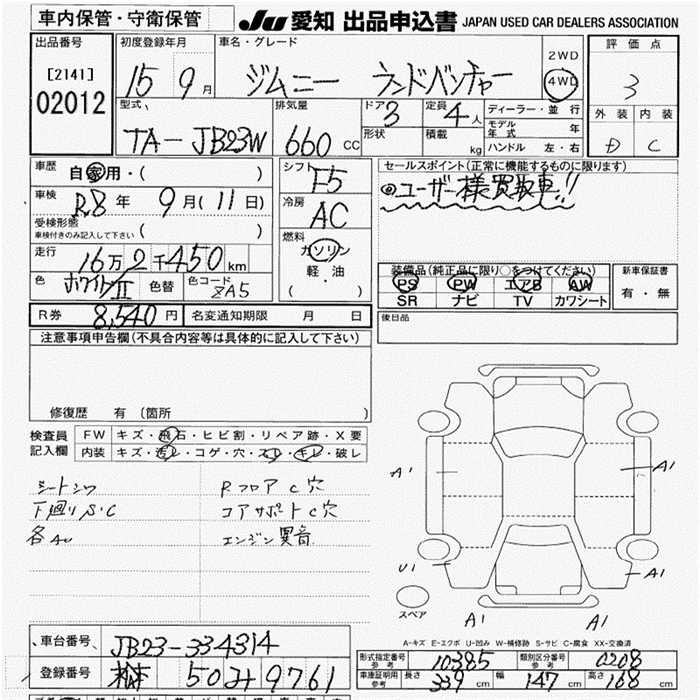 車内保管・守衛保管
JU 愛知 出品申込書 JAPAN USED CAR DEALERS ASSOCIATION
出品番号
[2141]
02012
初度登録年月
15 9月
車名・グレード
ジムニー ランドベンチャー
2WD
4WD
評価点
3
外装 内装
D C
型式
TA-JB23W
排気量
660 cc
ドア 3
形状
定員 4人
積載 kg
ディーラー・並行
モデル年式 年
ハンドル 左・右
車歴
自家用・( )
車検
R8年 9月(11日)
受検形態
車検付きのみ記入して下さい ( )
走行
16万2千450km
色 ホワイトII 色替 色コード ZA5
シフト
F5
冷房
AC
燃料
ガソリン
軽・油
( ・ )
セールスポイント(正常に機能するものに限ります)
◎ユーザー様買取車!!
装備品(純正品に限り○をつけてください)
PS PW エアB AW
SR ナビ TV カワシート
新車保証書
有・無
R券 8,540円 名変通知期限 月 日
後日品
注意事項申告欄(不具合内容等は具体的に記入して下さい)
修復歴 有 (箇所 )
検査員記入欄
FW キズ・飛石・ヒビ割・リペア跡・X要
内装 キズ・汚レ・コゲ・穴・スレ・キレ・破レ
シートシワ
下廻りS.C
各AU
Rフロア C穴
コアサポートC穴
エンジン異音
A1
A1
U1
A1
A1
A1
スペア
A-キズ E-エクボ U-凹み W-補修跡 S-サビ C-腐食 XX-交換済
車台番号 JB23-334314
登録番号 50 9761
形式指定番号 参考 10385 類別区分番号 参考 0208
車庫証明用 参考 長さ 339cm 幅 147cm 高さ 168cm